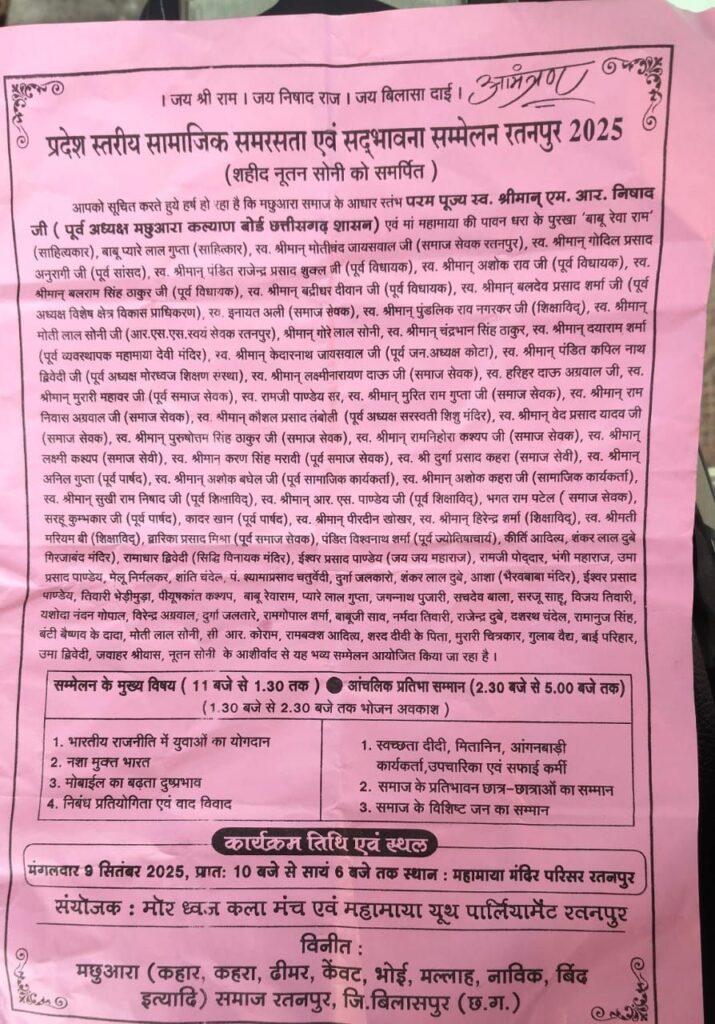 । जय श्री राम । जय निषाद राज । जय बिलासा दाई ।
आमंत्रण
प्रदेश स्तरीय सामाजिक समरसता एवं सद्भावना सम्मेलन रतनपुर 2025
(शहीद नूतन सोनी को समर्पित )
आपको सूचित करते हुये हर्ष हो रहा है कि मछुआरा समाज के आधार स्तंभ परम पूज्य स्व. श्रीमान् एम. आर. निषाद
जी ( पूर्व अध्यक्ष मछुआरा कल्याण बोर्ड छत्तीसगढ़ शासन) एवं मां महामाया की पावन धरा के पुरखा 'बाबू रेवा राम'
(साहित्यकार), बाबू प्यारे लाल गुप्ता (साहित्कार), स्व. श्रीमान् मोतीचंद जायसवाल जी (समाज सेवक रतनपुर), स्व. श्रीमान् गोदिल प्रसाद
अनुरागी जी (पूर्व सांसद), स्व. श्रीमान् पंडित राजेन्द्र प्रसाद शुक्ल जी (पूर्व विधायक), स्व. श्रीमान् अशोक राव जी (पूर्व विधायक), स्व.
श्रीमान् बलराम सिंह ठाकुर जी (पूर्व विधायक), स्व. श्रीमान् बद्रीधर दीवान जी (पूर्व विधायक), स्व. श्रीमान् बलदेव प्रसाद शर्मा जी (पूर्व
अध्यक्ष विशेष क्षेत्र विकास प्राधिकरण), स्व. इनायत अली (समाज सेवक), स्व. श्रीमान् पुंडलिक राव नगरकर जी (शिक्षाविद्), स्व. श्रीमान्
मोती लाल सोनी जी (आर.एस.एस.स्वयं सेवक रतनपुर), श्रीमान् गोरे लाल सोनी, स्व. श्रीमान् चंद्रभान सिंह ठाकुर, स्व. श्रीमान् दयाराम शर्मा
(पूर्व व्यवस्थापक महामाया देवी मंदिर), स्व. श्रीमान् केदारनाथ जायसवाल जी (पूर्व जन.अध्यक्ष कोटा), स्व. श्रीमान् पंडित कपिल नाथ
द्विवेदी जी (पूर्व अध्यक्ष मोरध्वज शिक्षण संस्था), स्व. श्रीमान् लक्ष्मीनारायण दाऊ जी (समाज सेवक), स्व. हरिहर दाऊ अग्रवाल जी, स्व.
श्रीमान् मुरारी महावर जी (पूर्व समाज सेवक), स्व. रामजी पाण्डेय सर, स्व. श्रीमान् मुरित राम गुप्ता जी (समाज सेवक), स्व. श्रीमान् राम
निवास अग्रवाल जी (समाज सेवक), स्व. श्रीमान् कौशल प्रसाद तंबोली (पूर्व अध्यक्ष सरस्वती शिशु मंदिर), स्व. श्रीमान् वेद प्रसाद यादव जी
(समाज सेवक), स्व. श्रीमान् पुरुषोत्तम सिंह ठाकुर जी (समाज सेवक), स्व. श्रीमान् रामनिहोरा कश्यप जी (समाज सेवक), स्व. श्रीमान्
लक्ष्मी कश्यप (समाज सेवी), स्व. श्रीमान करण सिंह मरावी (पूर्व समाज सेवक), स्व. श्री दुर्गा प्रसाद कहरा (समाज सेवी), स्व. श्रीमान्
अनिल गुप्ता (पूर्व पार्षद), स्व. श्रीमान् अशोक बघेल जी (पूर्व सामाजिक कार्यकर्ता), स्व. श्रीमान् अशोक कहरा जी (सामाजिक कार्यकर्ता),
स्व. श्रीमान् सुखी राम निषाद जी (पूर्व शिक्षाविद्), स्व. श्रीमान् आर. एस. पाण्डेय जी (पूर्व शिक्षाविद्), भगत राम पटेल ( समाज सेवक),
सरहू कुम्भकार जी (पूर्व पार्षद), कादर खान (पूर्व पार्षद), स्व. श्रीमान् पीरदीन खोखर, स्व. श्रीमान् हिरेन्द्र शर्मा (शिक्षाविद्), स्व. श्रीमती
मरियम बी (शिक्षाविद्), द्वारिका प्रसाद मिश्रा (पूर्व समाज सेवक), पंडित विश्वनाथ शर्मा (पूर्व ज्योतिषाचार्य), कीर्ति आदित्य, शंकर लाल दुबे
गिरजाबंद मंदिर), रामाधार द्विवेदी (सिद्धि विनायक मंदिर), ईश्वर प्रसाद पाण्डेय (जय जय महाराज), रामजी पोद्दार, भंगी महाराज, उमा
प्रसाद पाण्डेय, मेलू निर्मलकर, शांति चंदेल, पं. श्यामाप्रसाद चतुर्वेदी, दुर्गा जलकारो, शंकर लाल दुबे, आशा (भैरवबाबा मंदिर), ईश्वर प्रसाद
पाण्डेय, तिवारी भेड़ीमुड़ा, पीयूषकांत कश्यप, बाबू रेवाराम, प्यारे लाल गुप्ता, जगन्नाथ पुजारी, सचदेव बाला, सरजू साहू, विजय तिवारी,
यशोदा नंदन गोपाल, विरेन्द्र अग्रवाल, दुर्गा जलतारे, रामगोपाल शर्मा, बाबूजी साव, नर्मदा तिवारी, राजेन्द्र दुबे, दशरथ चंदेल, रामानुज सिंह,
बंटी बैष्णव के दादा, मोती लाल सोनी, सी आर. कोराम, रामबक्श आदित्य, शरद दीदी के पिता, मुरारी चित्रकार, गुलाब वैद्य, बाई परिहार,
उमा द्विवेदी, जवाहर श्रीवास, नूतन सोनी के आशीर्वाद से यह भव्य सम्मेलन आयोजित किया जा रहा है ।
सम्मेलन के मुख्य विषय ( 11 बजे से 1.30 तक ) ● आंचलिक प्रतिभा सम्मान (2.30 बजे से 5.00 बजे तक)
(1.30 बजे से 2.30 बजे तक भोजन अवकाश )
1. भारतीय राजनीति में युवाओं का योगदान
2. नशा मुक्त भारत
3. मोबाईल का बढ़ता दुष्प्रभाव
4. निबंध प्रतियोगिता एवं वाद विवाद
1. स्वच्छता दीदी, मितानिन, आंगनबाड़ी
कार्यकर्ता,उपचारिका एवं सफाई कर्मी
2. समाज के प्रतिभावन छात्र-छात्राओं का सम्मान
3. समाज के विशिष्ट जन का सम्मान
कार्यक्रम तिथि एवं स्थल
मंगलवार 9 सितंबर 2025, प्रातः 10 बजे से सायं 6 बजे तक स्थान : महामाया मंदिर परिसर रतनपुर
संयोजक : मोर ध्वज कला मंच एवं महामाया यूथ पार्लियामेंट रतनपुर
विनीत :
मछुआरा (कहार, कहरा, ढीमर, केंवट, भोई, मल्लाह, नाविक, बिंद
इत्यादि) समाज रतनपुर, जि.बिलासपुर (छ.ग.)